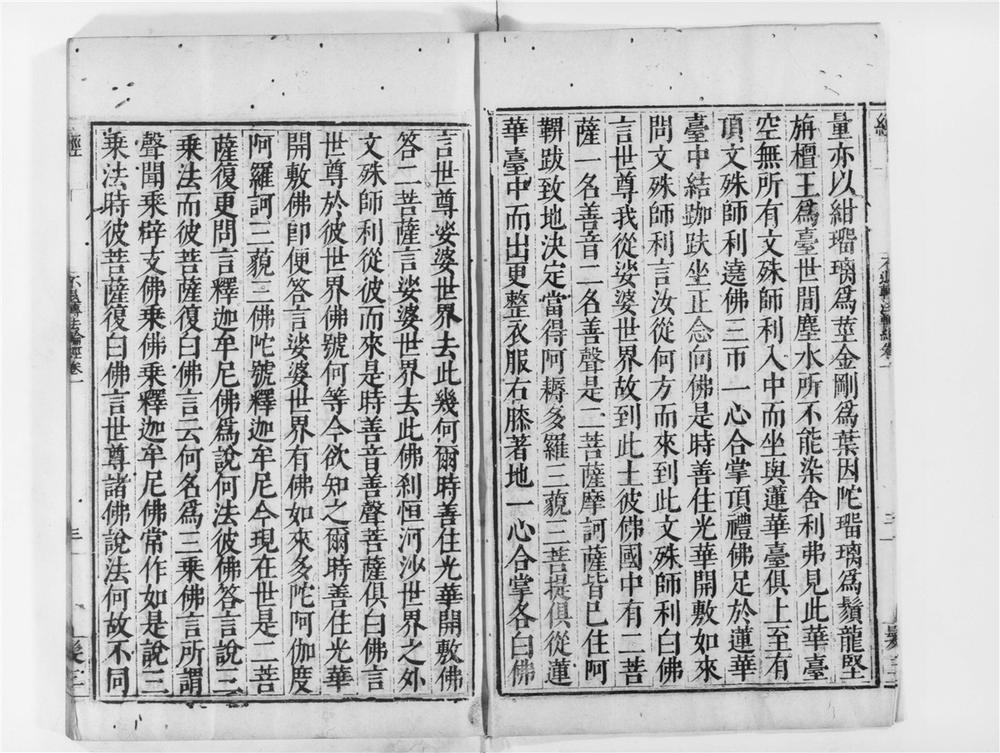 量亦以紺瑠璃爲莖金剛爲葉因陀瑠璃爲鬚龍堅
旃檀王爲臺世間塵水所不能染舍利弗見此華臺
空無所有文殊師利入中而坐與蓮華臺俱上至有
頂文殊師利遶佛三帀一心合掌頂禮佛足於蓮華
臺中結跏趺坐正念向佛是時善住光華開敷如來
問文殊師利言汝從何方而來到此文殊師利白佛
言世尊我從娑婆世界故到此土彼佛國中有二菩
薩一名善音二名善聲是二菩薩摩訶薩皆已住阿
鞞跋致地決定當得阿耨多羅三藐三菩提俱從蓮
華臺中而出更整衣服右膝著地一心合掌各白佛
言世尊娑婆世界去此幾何爾時善住光華開敷佛
答二菩薩言娑婆世界去此佛剎恒河沙世界之外
文殊師利從彼而來是時善音善聲菩薩俱白佛言
世尊於彼世界佛號何等今欲知之爾時善住光華
開敷佛卽便答言娑婆世界有佛如來多陀阿伽度
阿羅訶三藐三佛陀號釋迦牟尼今現在世是二菩
薩復更問言釋迦牟尼佛爲說何法彼佛答言說三
乘法而彼菩薩復白佛言云何名爲三乘佛言所謂
聲聞乘辟支佛乘佛乘釋迦牟尼佛常作如是說三
乘法時彼菩薩復白佛言世尊諸佛說法何故不同
經
不退轉法輪經卷一
三